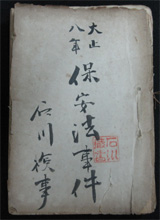 大正
八年
保安法事件
石川検事